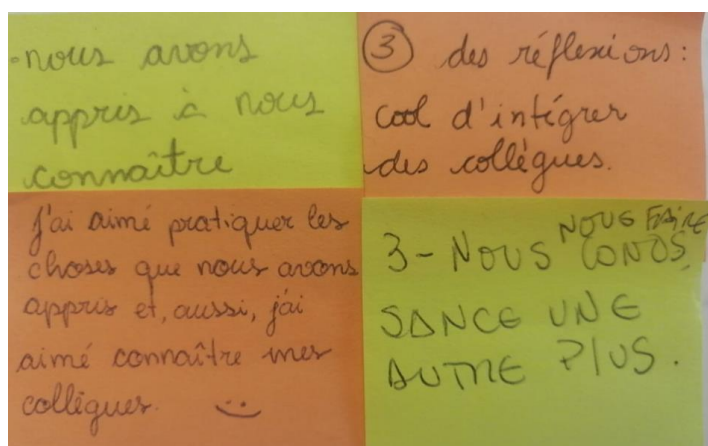 - nous avons
appris à nous
connaître
③ des réflexions:
cool d'intégrer
des collègues.
J'ai aimé pratiquer les
choses que nous avons
appris et, aussi, j'ai
aimé connaître mes
collègues. :)
NOUS FAIRE
3- NOUS CONOS
SANCE UNE
AUTRE PLUS.